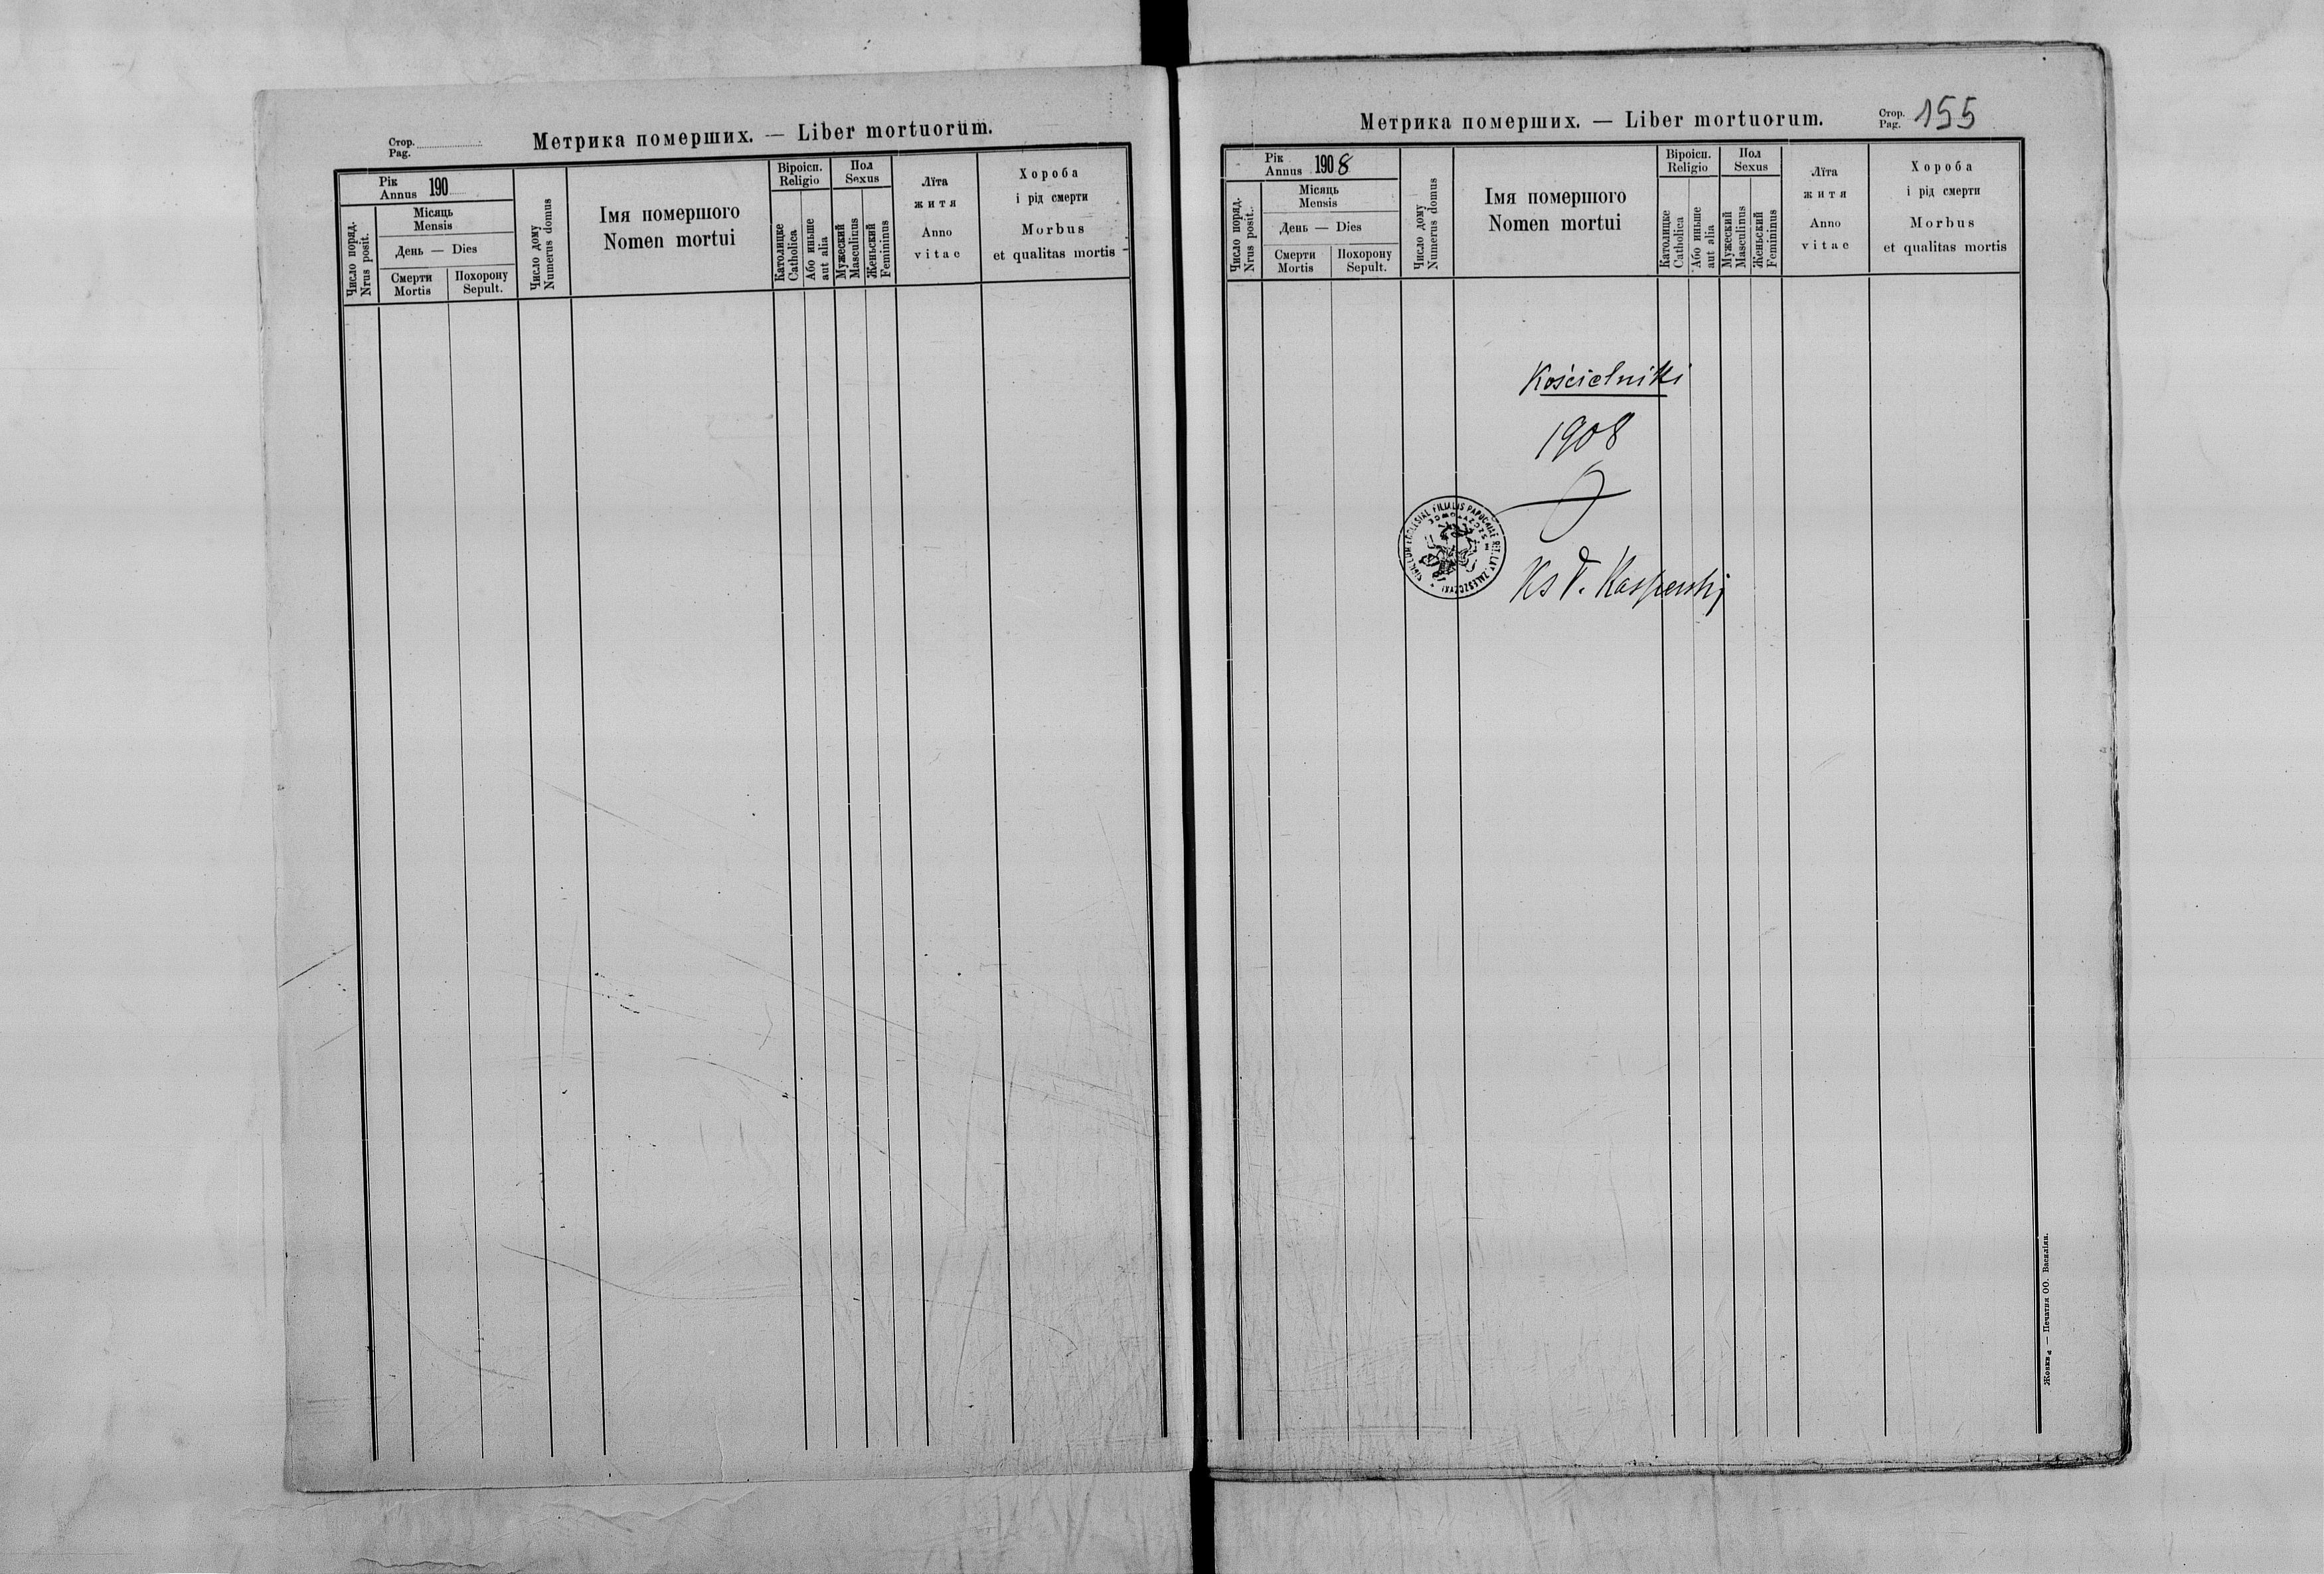 Стор.
Pag.
Метрика померших. — Liber mortuorum.
Рік
Annus 190
Число поряд.
Nrus posit.
Місяць
Mensis
День — Dies
Смерти
Mortis
Похорону
Sepult.
Число дому
Numerus domus
Імя помершого
Nomen mortui
Віроісп.
Religio
Католицке
Catholica
Або иньше
aut alia
Пол
Sexus
Мужеский
Masculinus
Женьский
Femininus
Лїта
житя
Anno
vitae
Хороба
і рід смерти
Morbus
et qualitas mortis
Метрика померших. — Liber mortuorum.
Стор.
Pag. 155
Рік
Annus 1908
Число поряд.
Nrus posit.
Місяць
Mensis
День — Dies
Смерти
Mortis
Похорону
Sepult.
Число дому
Numerus domus
Імя помершого
Nomen mortui
Віроісп.
Religio
Католицке
Catholica
Або иньше
aut alia
Пол
Sexus
Мужеский
Masculinus
Женьский
Femininus
Лїта
житя
Anno
vitae
Хороба
і рід смерти
Morbus
et qualitas mortis
Kościelniki
1908
Ks Kasperski
Жовква — Печатня ОО. Василіян.